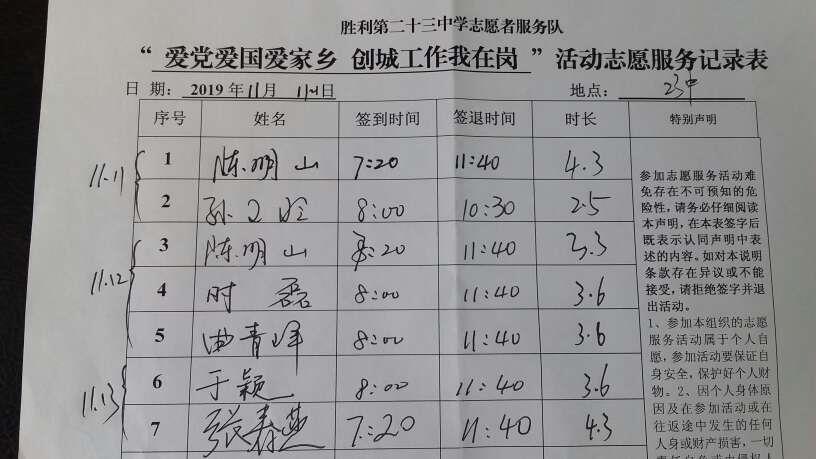 胜利第二十三中学志愿者服务队
“ 爱党爱国爱家乡 创城工作我在岗 ”活动志愿服务记录表
日 期：2019 年 11 月 日 地点： 23中
序号 姓名 签到时间 签退时间 时长 特别声明
11.11
1 陈明山 7:20 11:40 4.3
2 孙 8:00 10:30 2.5
11.12
3 陈明山 8:20 11:40 3.3
4 时磊 8:00 11:40 3.6
5 曲青峰 8:00 11:40 3.6
11.13
6 于颖 8:00 11:40 3.6
7 张春燕 7:20 11:40 4.3
参加志愿服务活动难
免存在不可预知的危
险性，请务必仔细阅读
本声明，在本表签字后
既表示认同声明中表
述的内容。如对本说明
条款存在异议或不能
接受，请拒绝签字并退
出活动。
1、参加本组织的志愿
服务活动属于个人自
愿，参加活动要保证自
身安全，保护好个人财
物。2、因个人身体原
因及在参加活动或在
往返途中发生的任何
人身或财产损害，一切